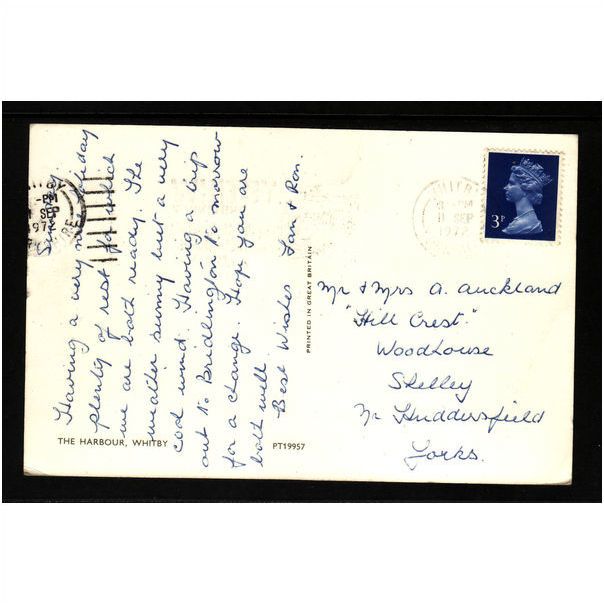 Having a very nice holiday
plenty of rest for which
we are both ready. The
weather sunny but a very
cool wind. Having a trip
out to Bridlington to morrow
for a change. Hope you are
both well.
Best Wishes Ian & Ron.
PRINTED IN GREAT BRITAIN
3P
11 SEP
1972
Mr & Mrs A. Auckland
"Hill Crest."
Woodhouse
Shelley
Nr Huddersfield
Yorks.
THE HARBOUR, WHITBY
PT19957